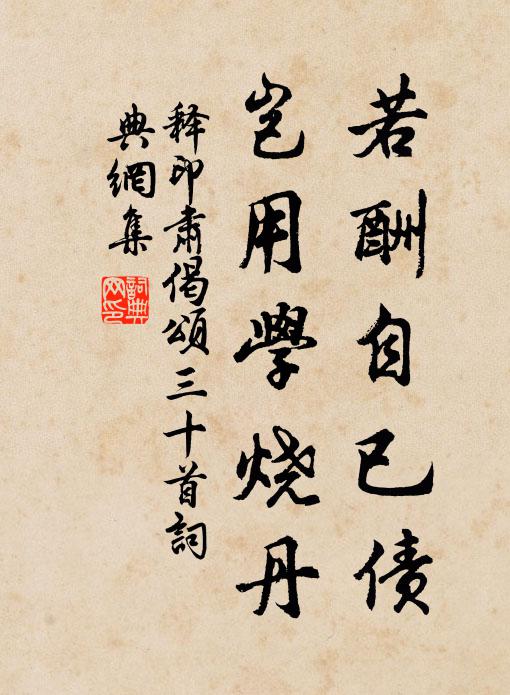 若酬自已债
岂用學烧丹
释印肃偈颂三十首詞
典網集
詞典
网印